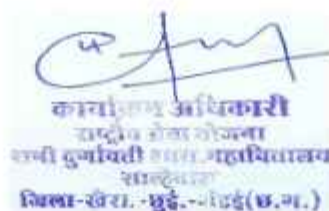 कार्यक्रम अधिकारी
राष्ट्रीय सेवा योजना
रानी दुर्गावती शास. महाविद्यालय
जिला-खैरा.-छुई.-गंडई(छ.ग.)